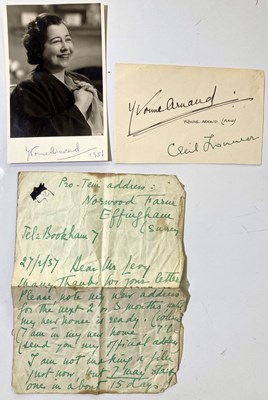 Yvonne Arnaud
Yvonne Arnaud
YVONNE ARNAUD (Young)
Cecil
Pro-Tem address:
Norwood Farm
Effingham
(Surrey)
Tel: Bookham 7
27/2/37 Dear Mr Levy
Many Thanks for your letter
Please note my new address
for the next 2 or 3 months until
my new house is ready. (when
I am in my new home
(send you my official address
I am not making a film
just now. But I may start
one in about 15 days.